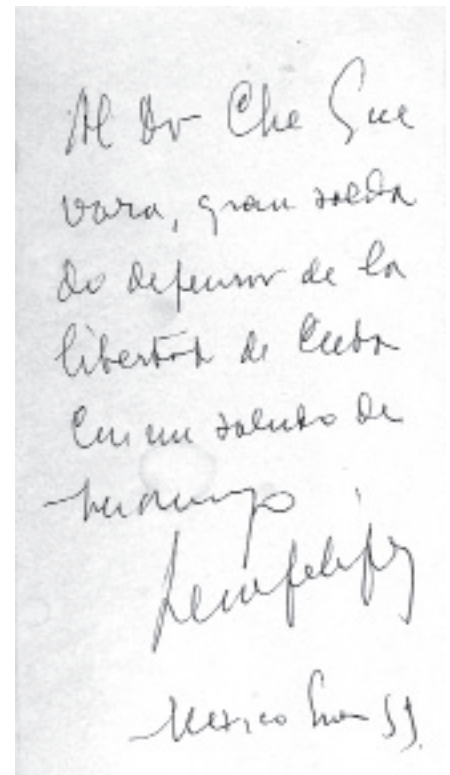 Al Dr Che Gue
vara, gran solda
do defensor de la
libertad de Cuba
Con un saludo de
León Felipe
Mexico 59